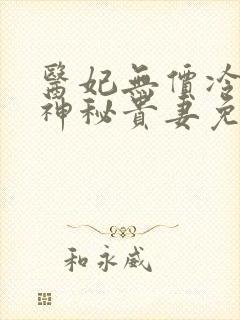 醫妃無價冷
神秘貴妻免
和永威